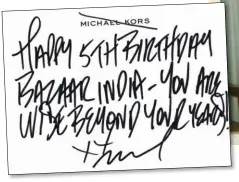 MICHAEL KORS
HAPPY 5TH BIRTHDAY
BAZAAR INDIA - YOU ARE
WISE BEYOND YOUR YEARS!